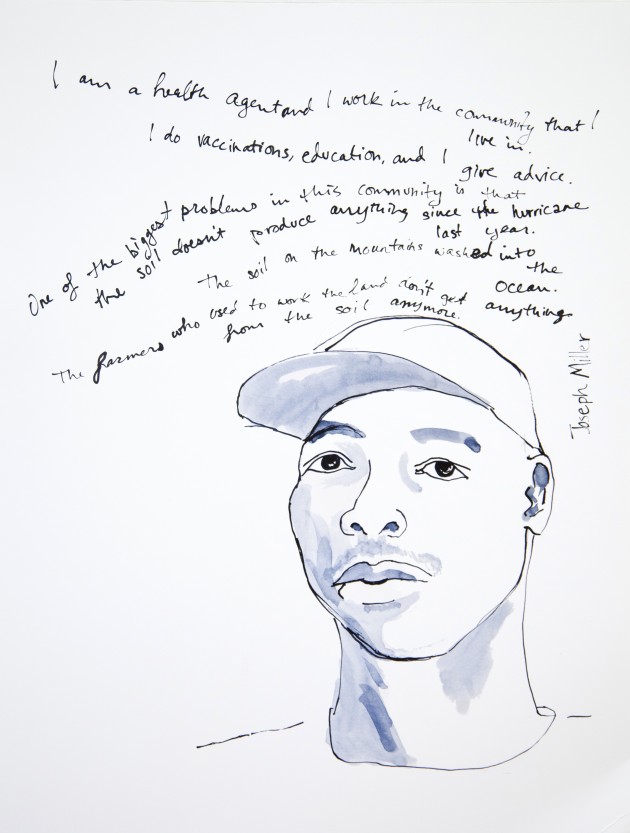 I am a health agent and I work in the community that I
live in.
I do vaccinations, education, and I
give advice.
One of the biggest problems in this community is that
the soil doesn't produce anything since the hurricane
last year.
The soil on the mountains washed into
the
ocean.
The farmers who used to work the land don't get anything
from the soil anymore.
Joseph Miller